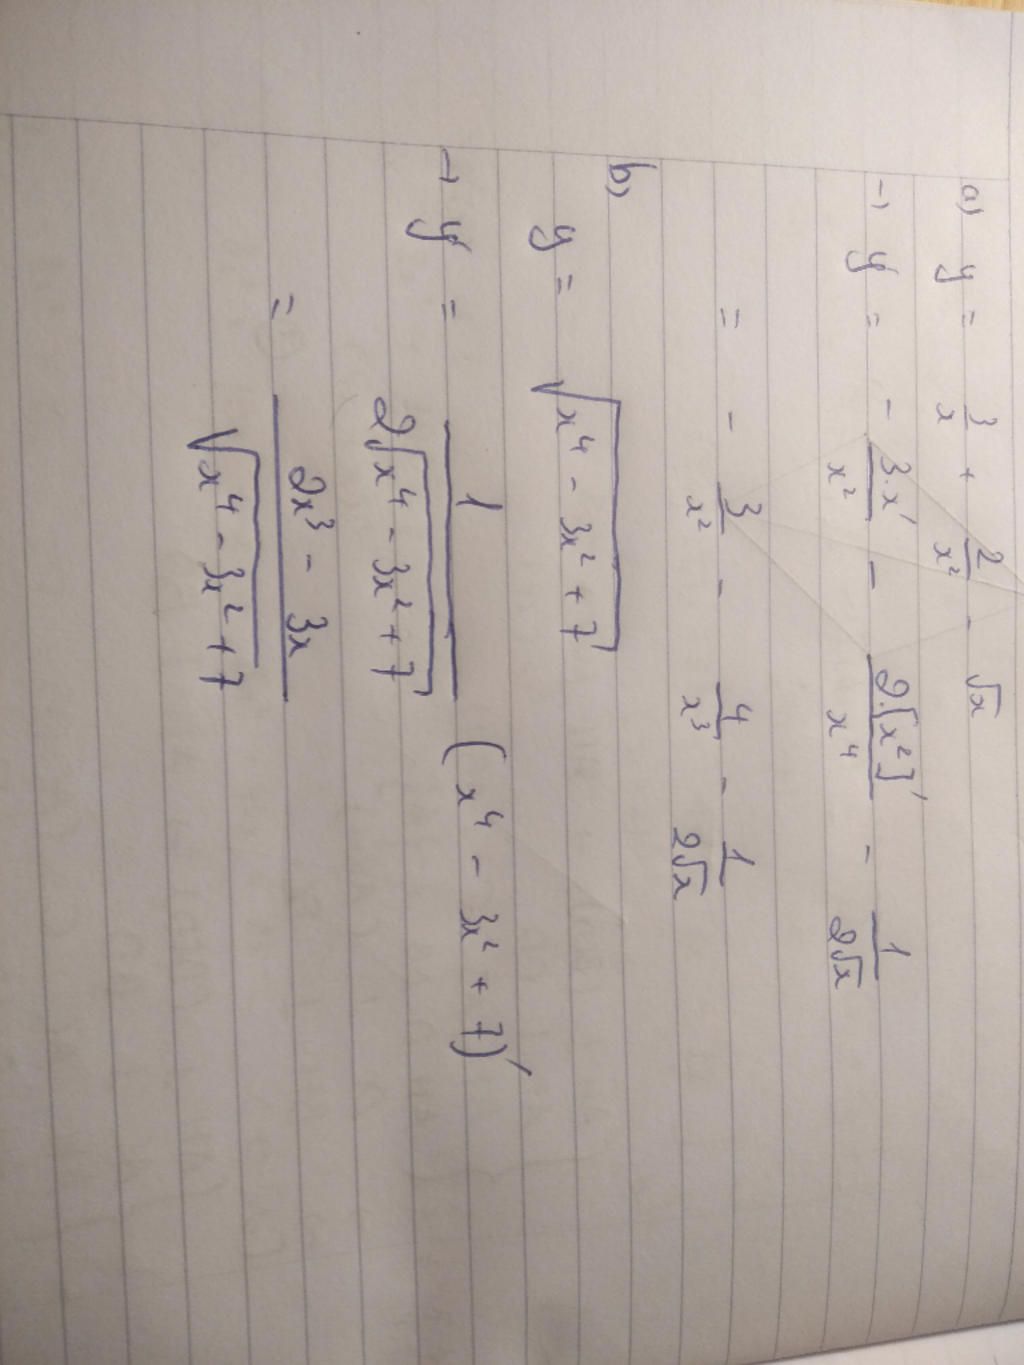 a) y = 3/x + 2/x² - √x
→ y = - 3.x'/x² - 2.[x²]'/x⁴ - 1/2√x
= - 3/x² - 4/x³ - 1/2√x
b)
y = √(x⁴ - 3x² + 7)
→ y = 1/2√(x⁴ - 3x² + 7) (x⁴ - 3x² + 7)'
= 2x³ - 3x/√(x⁴ - 3x² + 7)